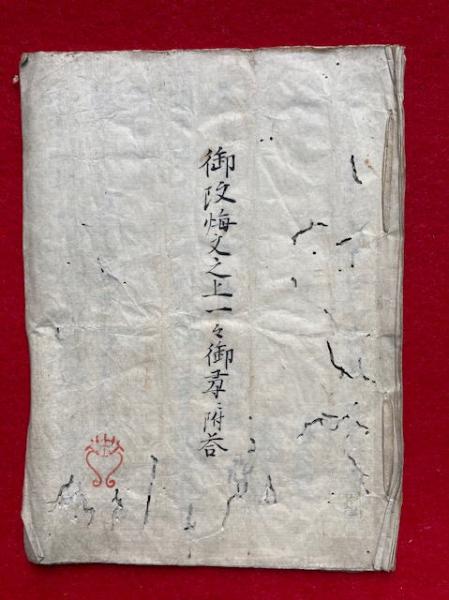 御改悔文之上一々御尋ニ附答